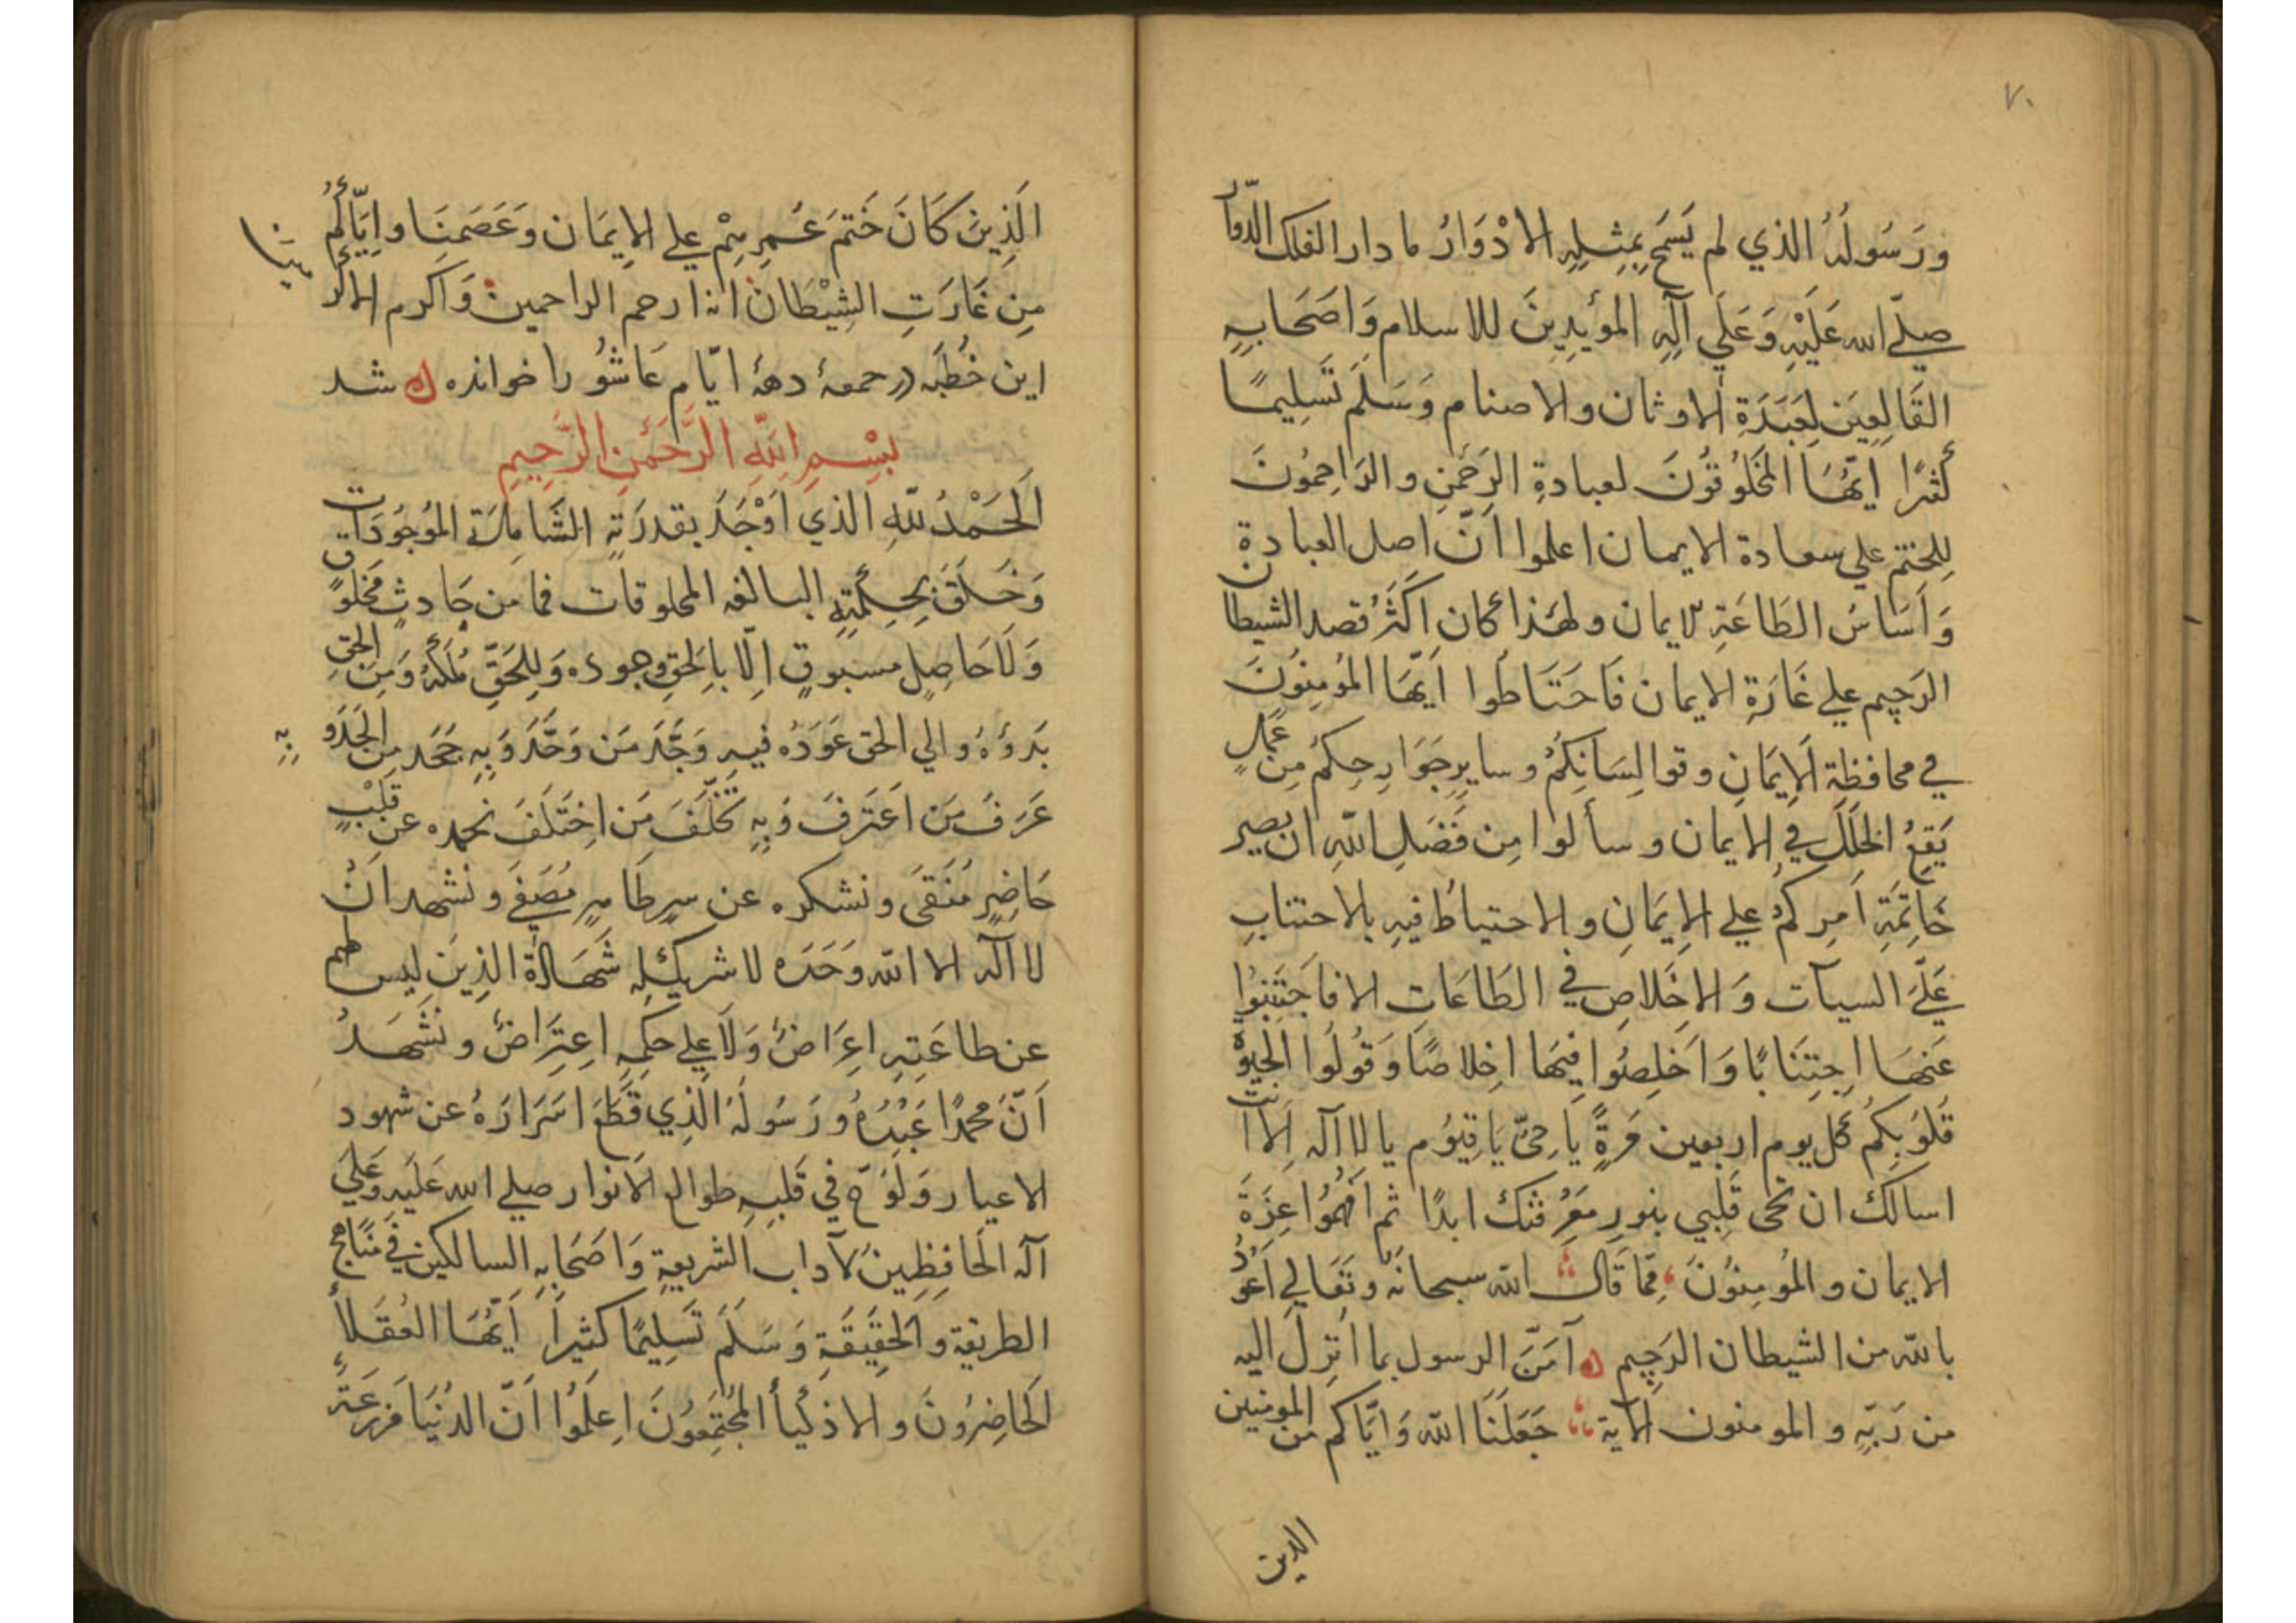 ٧٠
ورَسُولُهُ الذي لم يَسمَح بِمِثلِهِ الادْوَارُ ما دار الفلك الدوّار
صلّي الله عَلَيْهِ وَعَلَي آلِهِ المؤيدِينَ للاسلام وَاصَحَابِهِ
القَالِعِينَ لِعَبَدَةِ الاوثان والاصنام وَسَلَّمَ تَسلِيمًا
كثرًا ايّهَا المَخلُوقُونَ لعبادةِ الرحَمنِ والرَاحِمُونَ
لِلختم علي سعادة الايمان اعلموا انّ اصل العبادة
وَاَسَاسُ الطَاعَةِ لايمان ولهَذا كان اَكَثرُ قصد الشيطان
الرَجيم علي غَارَةِ الايمان فَاحَتَاطُوا اَيّهَا المُومِنُونَ
في محافظة اَلاِيمَانِ وقوا لِسَانِكُمُ وسايرِ جَوَارِحِكُم مِن عَمَلٍ
يَقعُ الخلَلُ في الايمان وسألوا مِن فَضَلِ اللهِ ان يصير
خَاتِمَةِ اَمرِكُم علي الاِيمَانِ والاحتياطُ فيهِ بالاحتنابِ
عَلَي السيآت وَالاخَلاصِ في الطَاعَاتِ الا فاجَتَنِبُوا
عَنهَا اجِتِنَابًا وَاخَلِصُوا فِيهَا اخِلاصًا وَقُولُوا الحيوة
قُلوُبِكُم كل يوم اربعين مَرةً يا حيّ يَا قيوُم يا لا اله اِلا انت
اسالك ان تحى قَلِبي بنورِ مَعرِفتك ابدًا ثم افهمُوا عِزَةَ
الايمان والمُومِنُونَ مِمّا قَال الله سبحانه وتَعَالي اَعُوذُ
بالله من الشيطان الرَجِيم آمَنَ الرسول بما انزِل اليه
من رَبّهِ والمومنون الآية جَعَلَنَا الله وَايّاكم من المومنين
الذين
الَذِينَ كَانَ خَتمَ عَمرِهِم علي الاِيمَان وعَصَمَنَا واِيّاكُم
مِن غَارَتِ الشِيْطَان انه ارحم الراحمين وَاكرم الاكرمين
اين خُطبَه در جمعهٔ دههٔ ايّام عَاشُورا خوانده شد
بِسْمِ اللهِ الرَّحَمنِ الرَّحِيمِ
اَلحَمْدُ للهِ الذي اَوْجَدَ بقدرَتهِ الشَامِلَة المُوجُودَات
وَخَلَقَ بِحِكمَتِهِ البالغه المخلوقات فما مَن حَادثٍ مَخلُوق
وَلَاحَاصِل مسبوقٍ اِلّا بالحَقِ وجوده وَلِلحَقِّ مُلكُهُ وَمِن الحق
بَدؤهُ والي الحق عَودُه فيهِ وَجَدَ مَن وَحَّدَ وَبِهِ جَحَد مِن الجَدَو
بِهِ
عَرَفَ مَن اعتَرَفَ وَبِهِ تَخَلّفَ مَن اختَلَفَ نحمده عن قَلْبٍ
حَاضِرٍ مُنَقىَ ونشكره عن سِرٍ طَاهِرٍ مُصَفىَ ونشهد اَن
لا اله الا الله وَحَدَه لا شريكَ لِه شَهَادة الذِينَ ليس لهم
عن طاعَتِهِ اعِرَاضٌ وَلَا علي حكمِهِ اعِتِرَاضٌ ونَشَهَدُ
اَنّ محمدًا عَبْدُهُ ورَسُولُهُ الَذِي قَطَعَ اسَرَارَهُ عن شهود
الاعيار وَلَوُحَ في قَلبِهِ طوالع الانوار صلي الله عَلَيهِ وَعَلَي
آله الحَافِظِينَ لآداب الشريعةِ وَاصَحَابِهِ السالكين في مَنَاهج
الطريقة وَالحقِيقَةِ وَسَلَمَ تَسَلِيمًا كثيراَ اَيّهَا العُقَلاَأُ
الحَاضِرُونَ والاذكَيأُ المُجتَمِعُونَ اِعِلَمُوا اَنّ الدُنيَا مَزرعَةُ